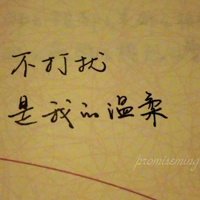 不打扰
是我的温柔
promiseming